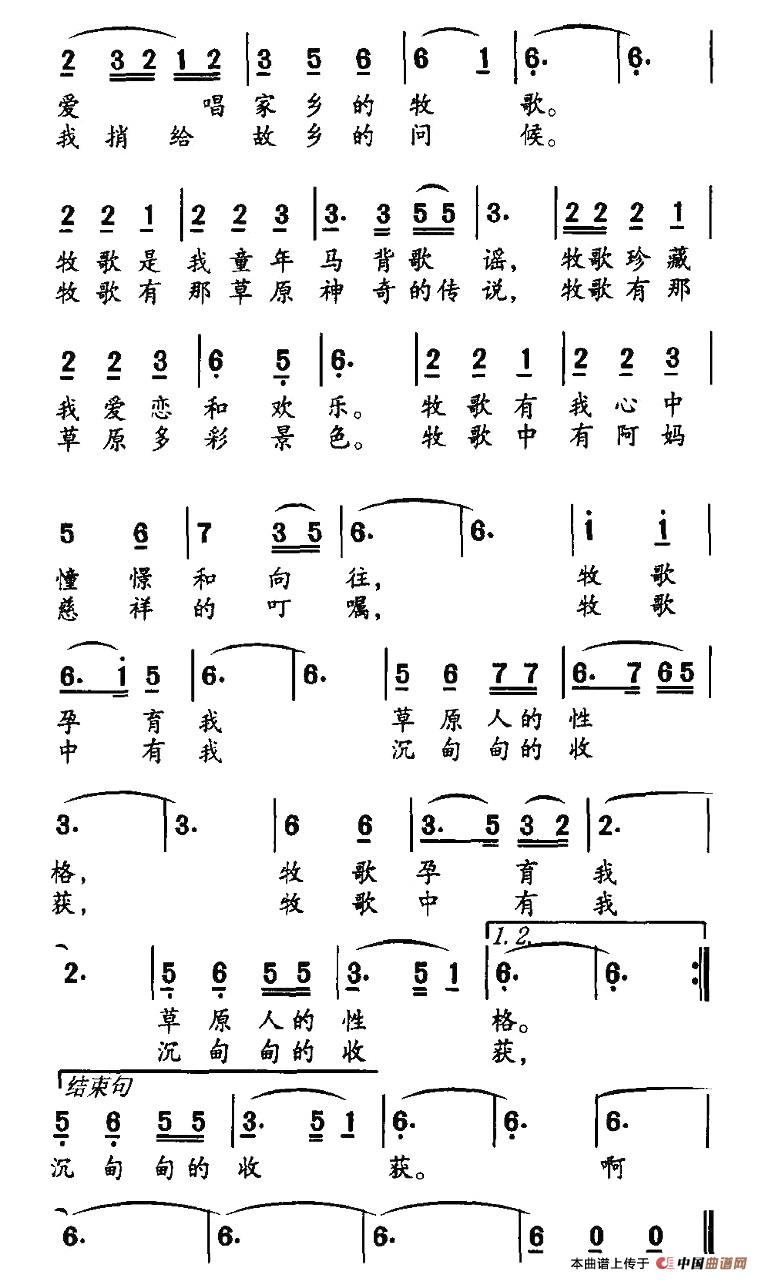 2 3 2 1 2 | 3 5 6 | 6 1 | 6. | 6. |
爱 唱家乡的牧 歌。
我捎给 故乡的问 候。
2 2 1 | 2 2 3 | 3. 3 5 5 | 3. | 2 2 2 1 |
牧歌是我童年马背歌 谣,牧歌珍藏
牧歌有那草原神奇的传说,牧歌有那
2 2 3 | 6 5 | 6. | 2 2 1 | 2 2 3 |
我爱恋和欢乐。牧歌有我心中
草原多彩景色。牧歌中有阿妈
5 6 | 7 3 5 | 6. | 6. | i i |
憧憬和向往, 牧歌
慈祥的叮嘱, 牧歌
6. i 5 | 6. | 6. | 5 6 7 7 | 6. 7 6 5 |
孕育我 草原人的性
中有我 沉甸甸的收
3. | 3. | 6 6 | 3. 5 3 2 | 2. |
格, 牧歌孕育我
获, 牧歌中有我
1. 2.
2. | 5 6 5 5 | 3. 5 1 | 6. | 6. :|
草原人的性 格。
沉甸甸的收 获,
结束句
5 6 5 5 | 3. 5 1 | 6. | 6. | 6.
沉甸甸的收 获。 啊
6. | 6. | 6. | 6 0 0 |
本曲谱上传于 中国曲谱网